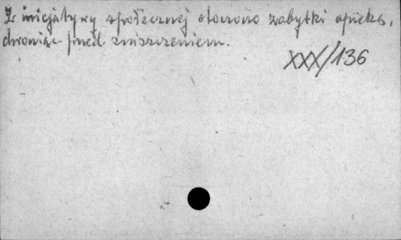 Z inicjatywy społecznej otoczono zabytki opieką,
chroniąc przed zniszczeniem.
XXX/136